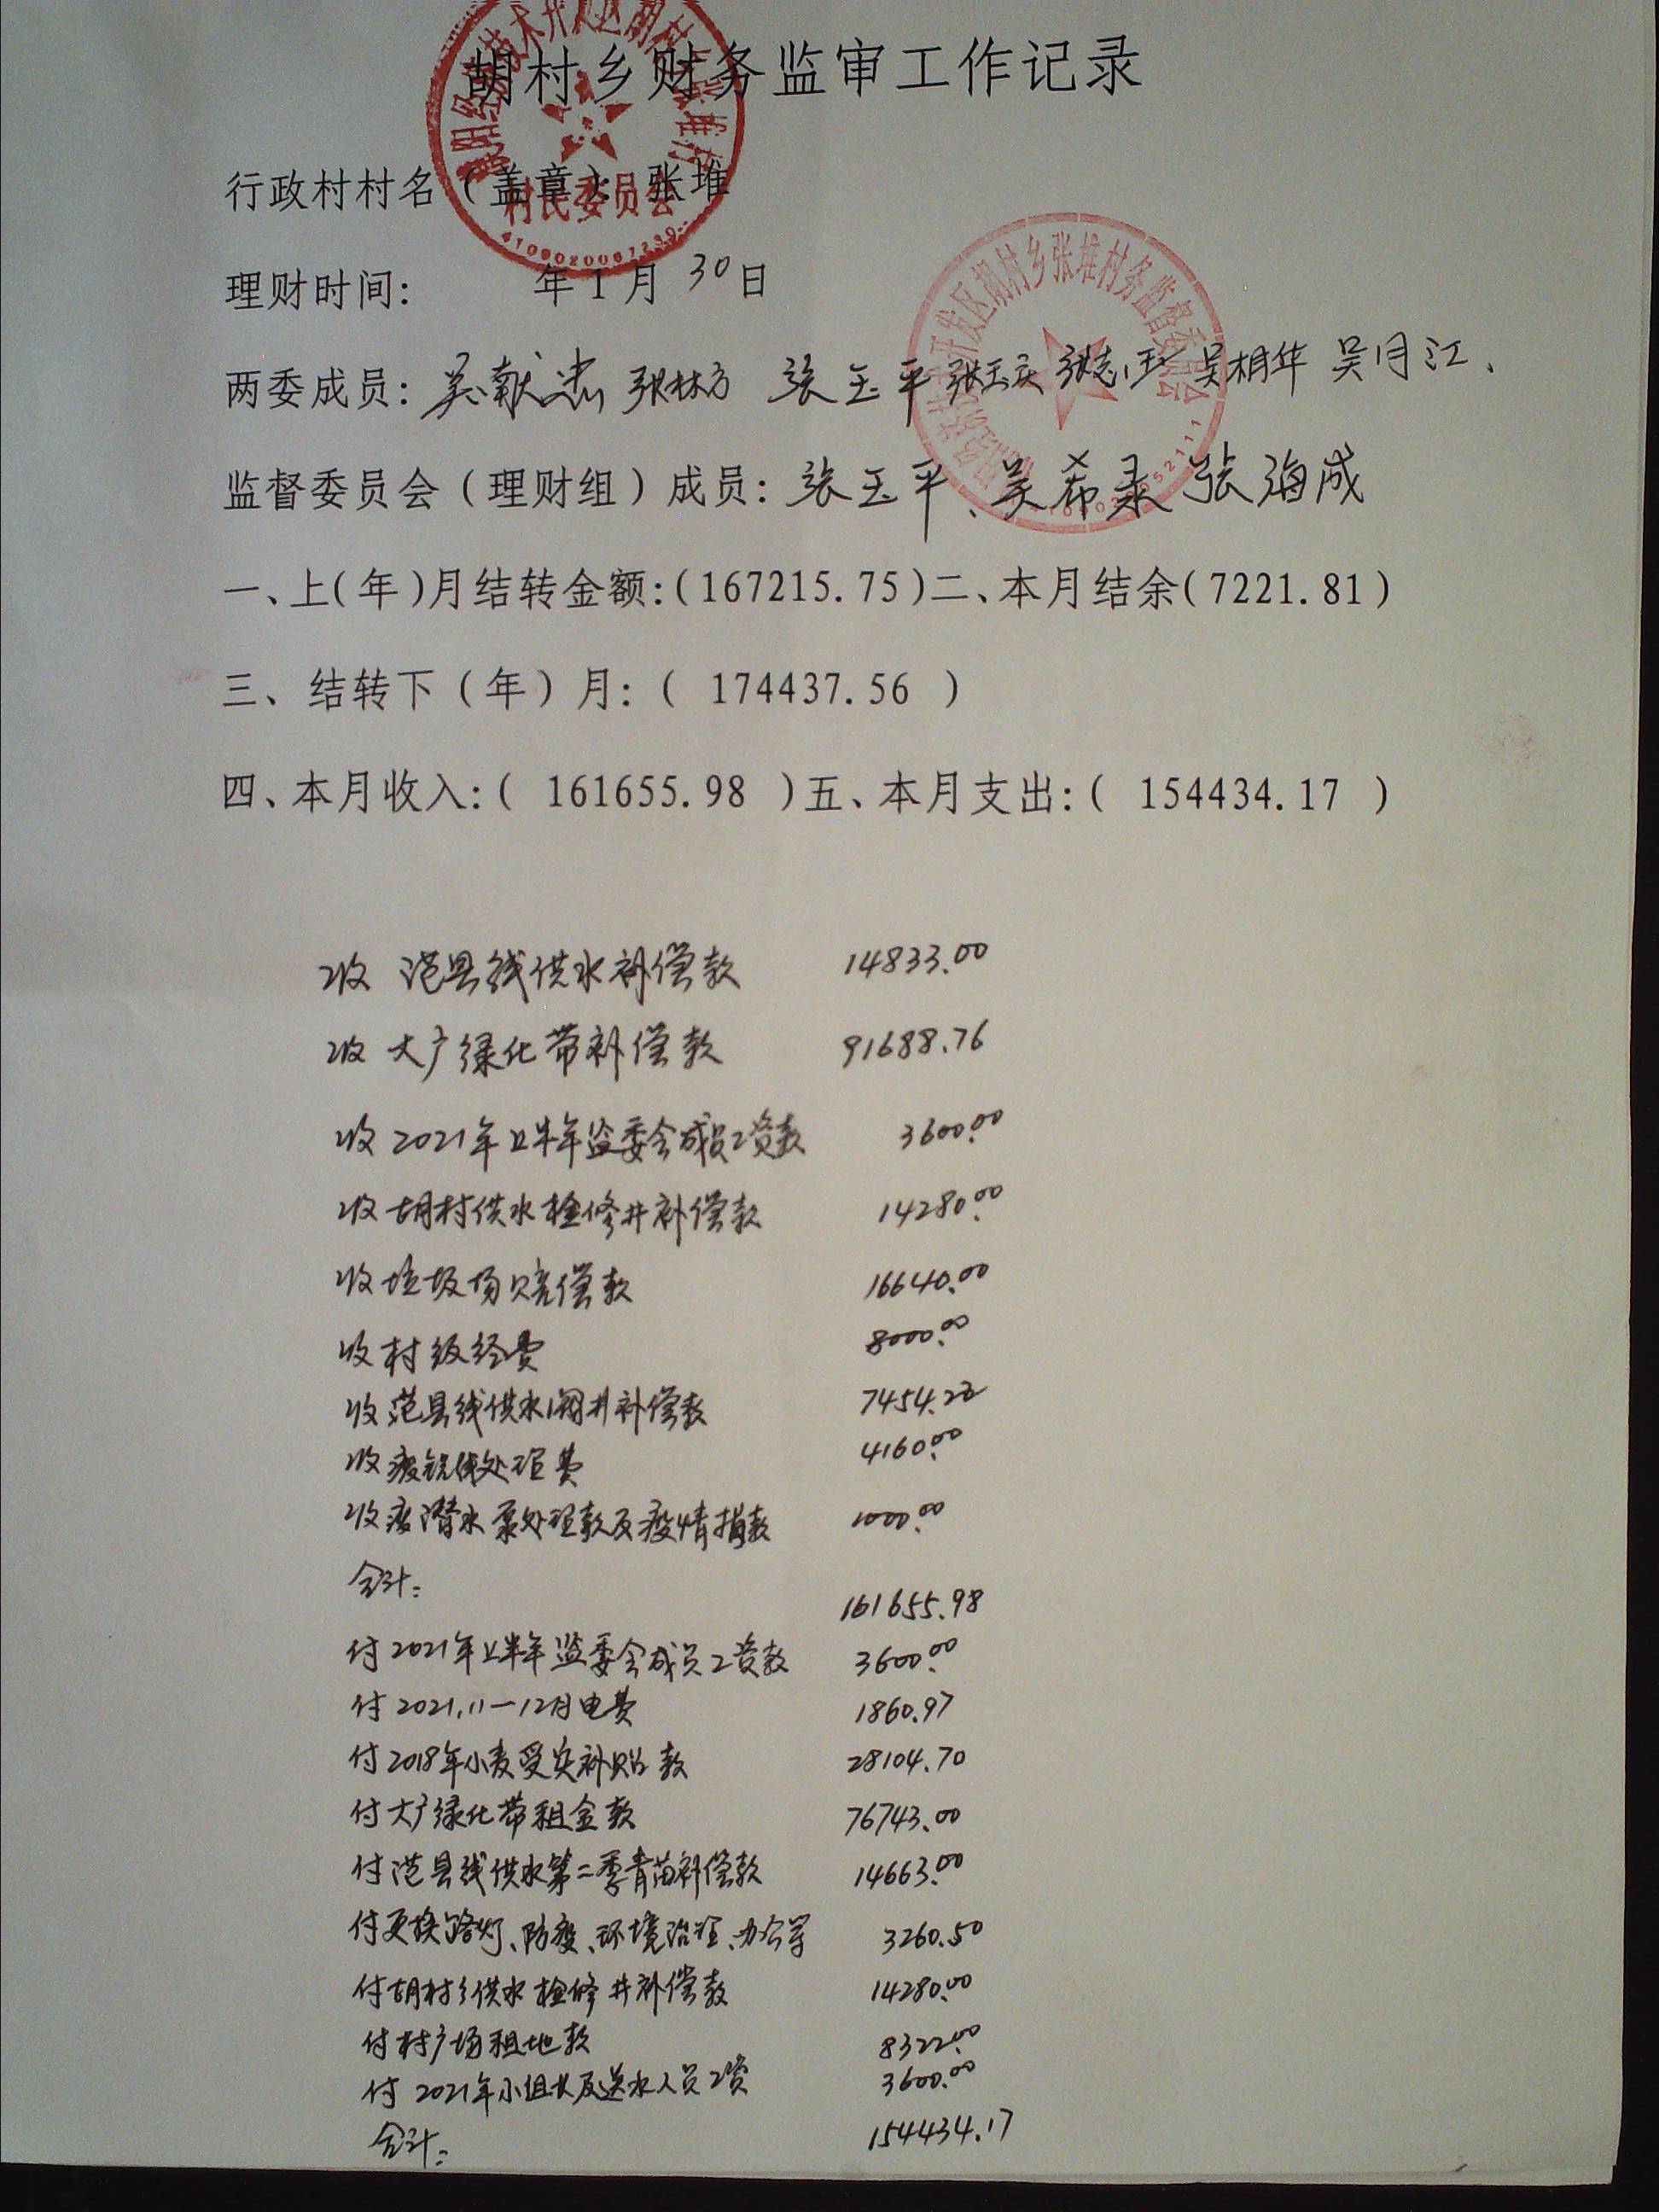 胡村乡财务监审工作记录
行政村村名（盖章）：张堆
村民委员会
理财时间： 年1月30日
开发区胡村乡张堆村务监督委员会
两委成员：吴献忠 张林方 张玉平 张玉庆 张志压 吴相华 吴同江、
监督委员会（理财组）成员：张玉平、吴希录 张海成
一、上(年)月结转金额：(167215.75)二、本月结余(7221.81)
三、结转下（年）月：( 174437.56 )
四、本月收入：( 161655.98 )五、本月支出：( 154434.17 )
收 范县线供水补偿款 14833.00
收大广绿化带补偿款 91688.76
收2021年上半年监委会成员工资款 3600.00
收胡村供水检修井补偿款 14280.00
收垃圾场赔偿款 16640.00
收村级经费 8000.00
收范县线供水阀井补偿款 7454.22
收废铝线处理费 4160.00
收废潜水泵处理款及疫情捐款 1000.00
合计： 161655.98
付2021年上半年监委会成员工资款 3600.00
付2021.11—12月电费 1860.97
付2018年小麦受灾补贴款 28104.70
付大广绿化带租金款 76743.00
付范县线供水第二季青苗补偿款 14663.00
付更换路灯、防疫、环境治理、办公等 3260.50
付胡村乡供水检修井补偿款 14280.00
付村广场租地款 8322.00
付2021年小组长及送水人员工资 3600.00
合计： 154434.17